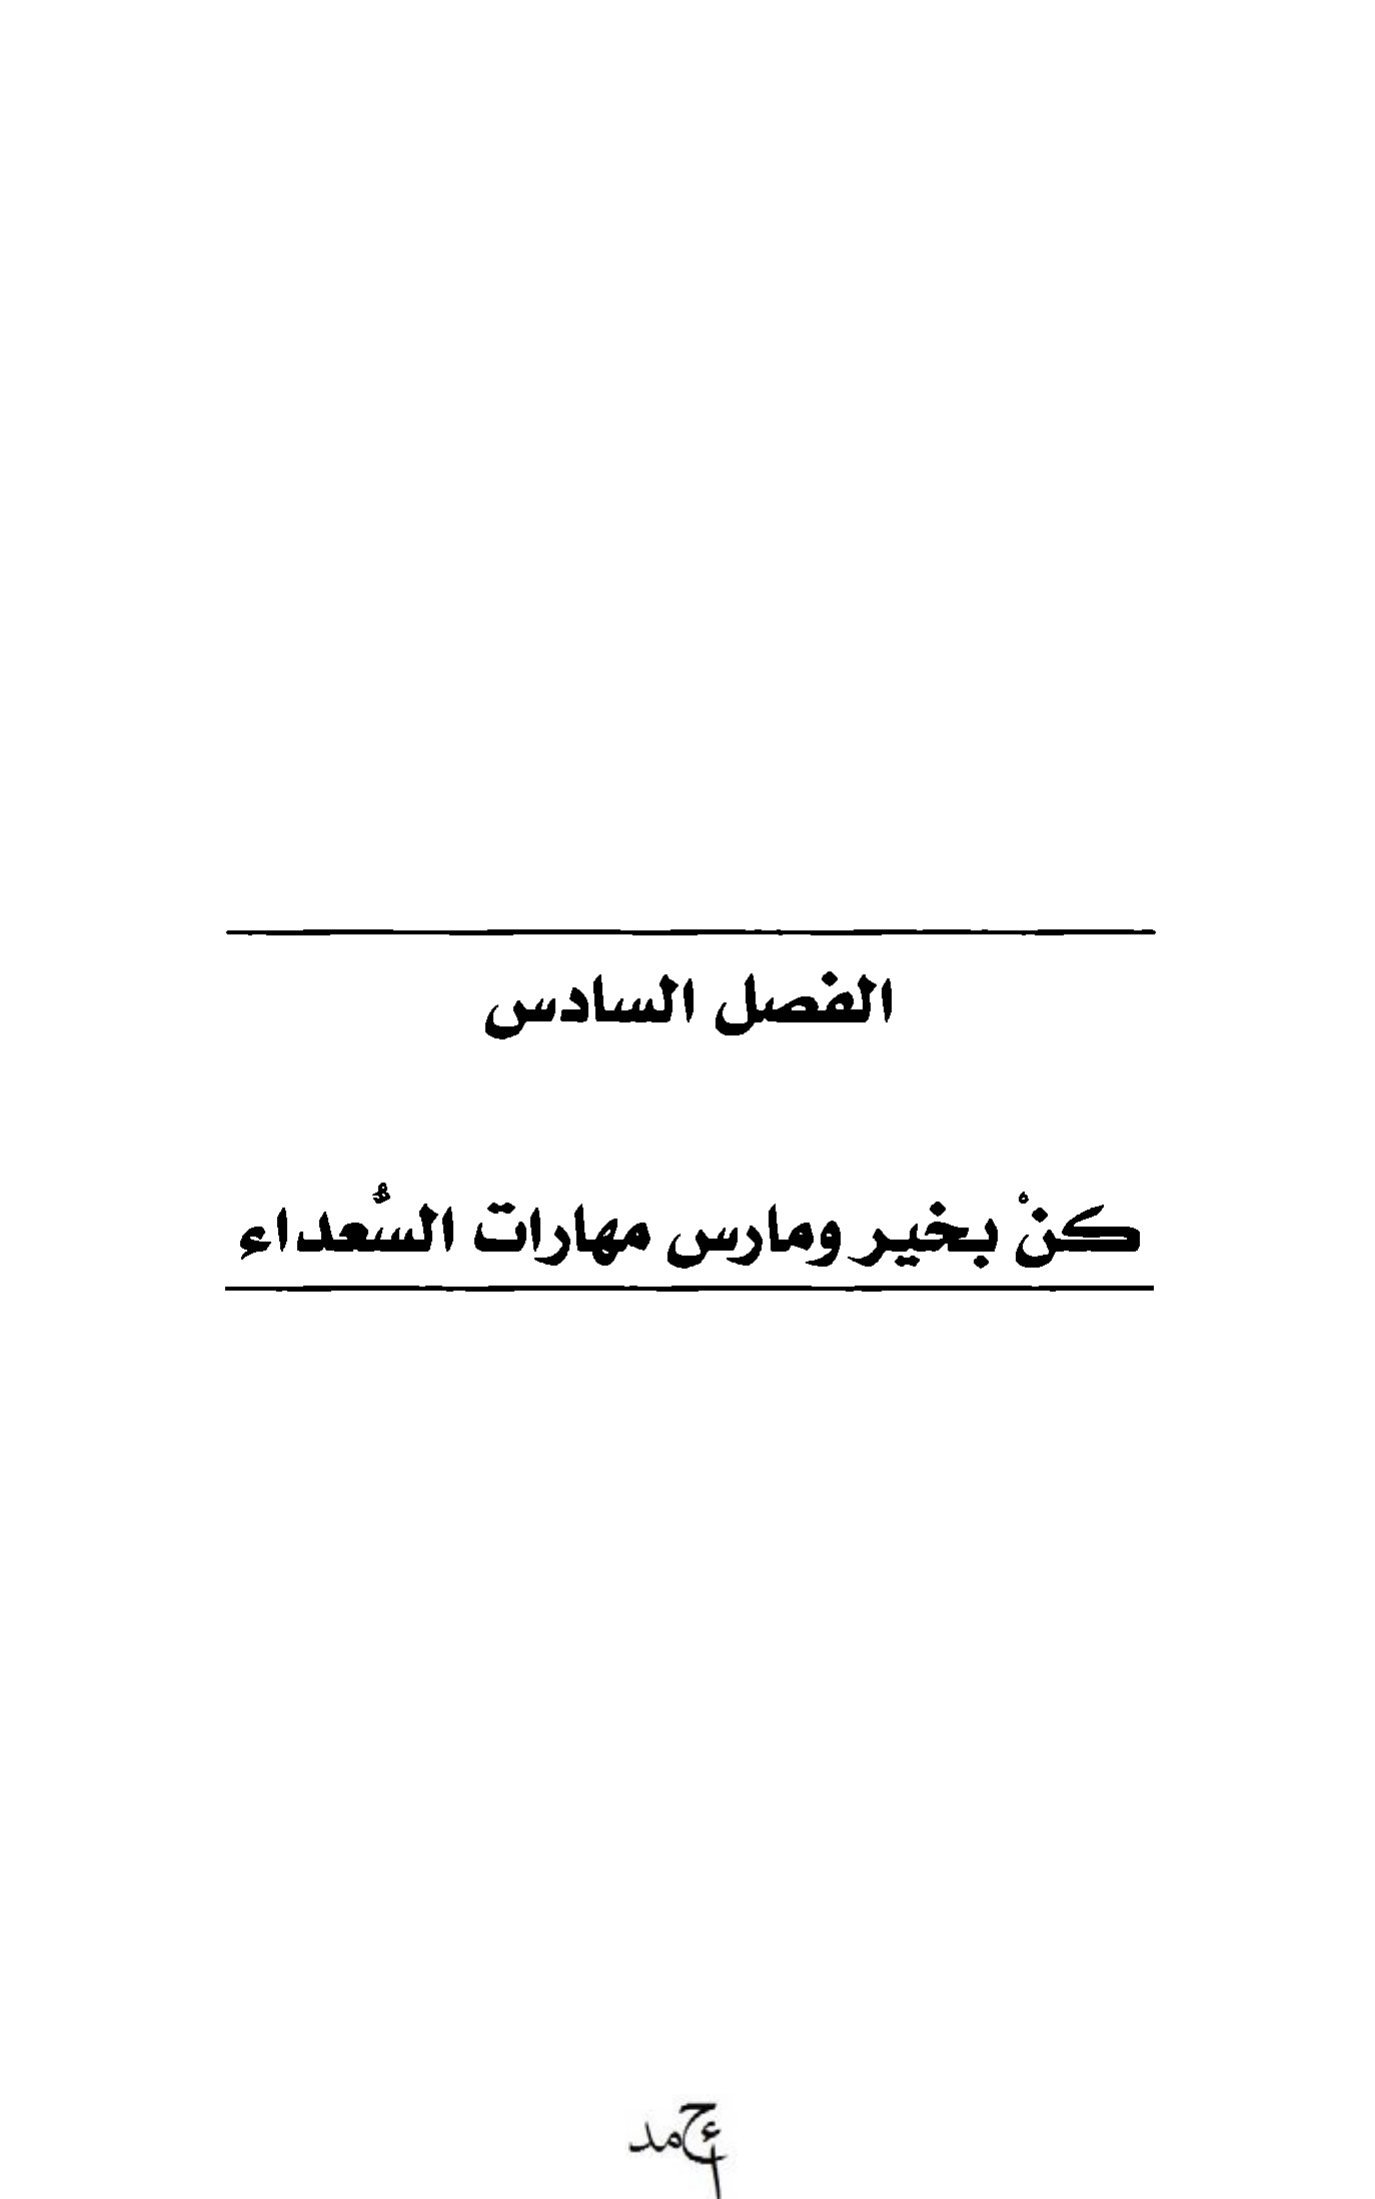 الفصل السادس
كنْ بخير ومارس مهارات السُّعداء
أحمد